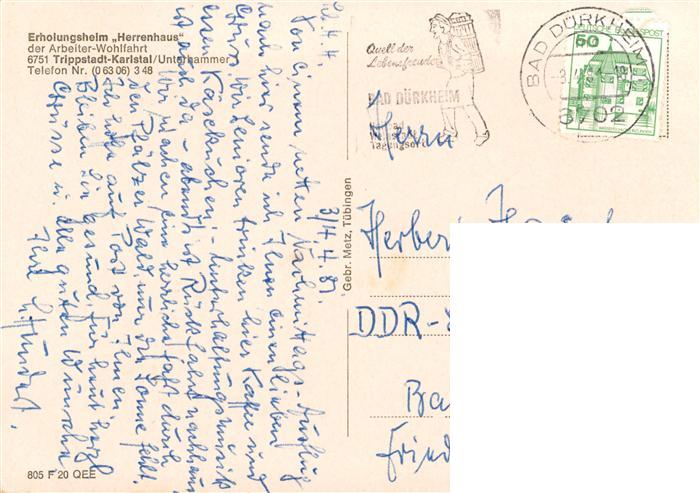 Erholungsheim „Herrenhaus"
der Arbeiter-Wohlfahrt
6751 Trippstadt-Karlstal/Unterhammer
Telefon Nr. (0 63 06) 3 48
3/4.4.81.
Von einem netten Nachmittags-Ausflug
nach hier sende ich Ihnen einen lieben
Gruß. Wir Senioren trinken hier Kaffee und
essen Käsekuchen; - Unterhaltungsmusik
ist auch da - abends ist Rückfahrt nachhaus
Wir machen eine herrliche Fahrt durch
den Pfälzer Wald, nur die Sonne fehlt.
Ich hoffe auf Post von Ihnen.
Bleiben Sie gesund, für heut herzl.
Grüsse u. alle guten Wünsche
Ihre
805 F 20 QEE
Gebr. Metz, Tübingen
Quell der
Lebensfreude
BAD DÜRKHEIM
Tagungsort
BAD DÜRKHEIM
6702
DEUTSCHE BUNDESPOST
50
Herrn
Herber
DDR-
Ba
Fried